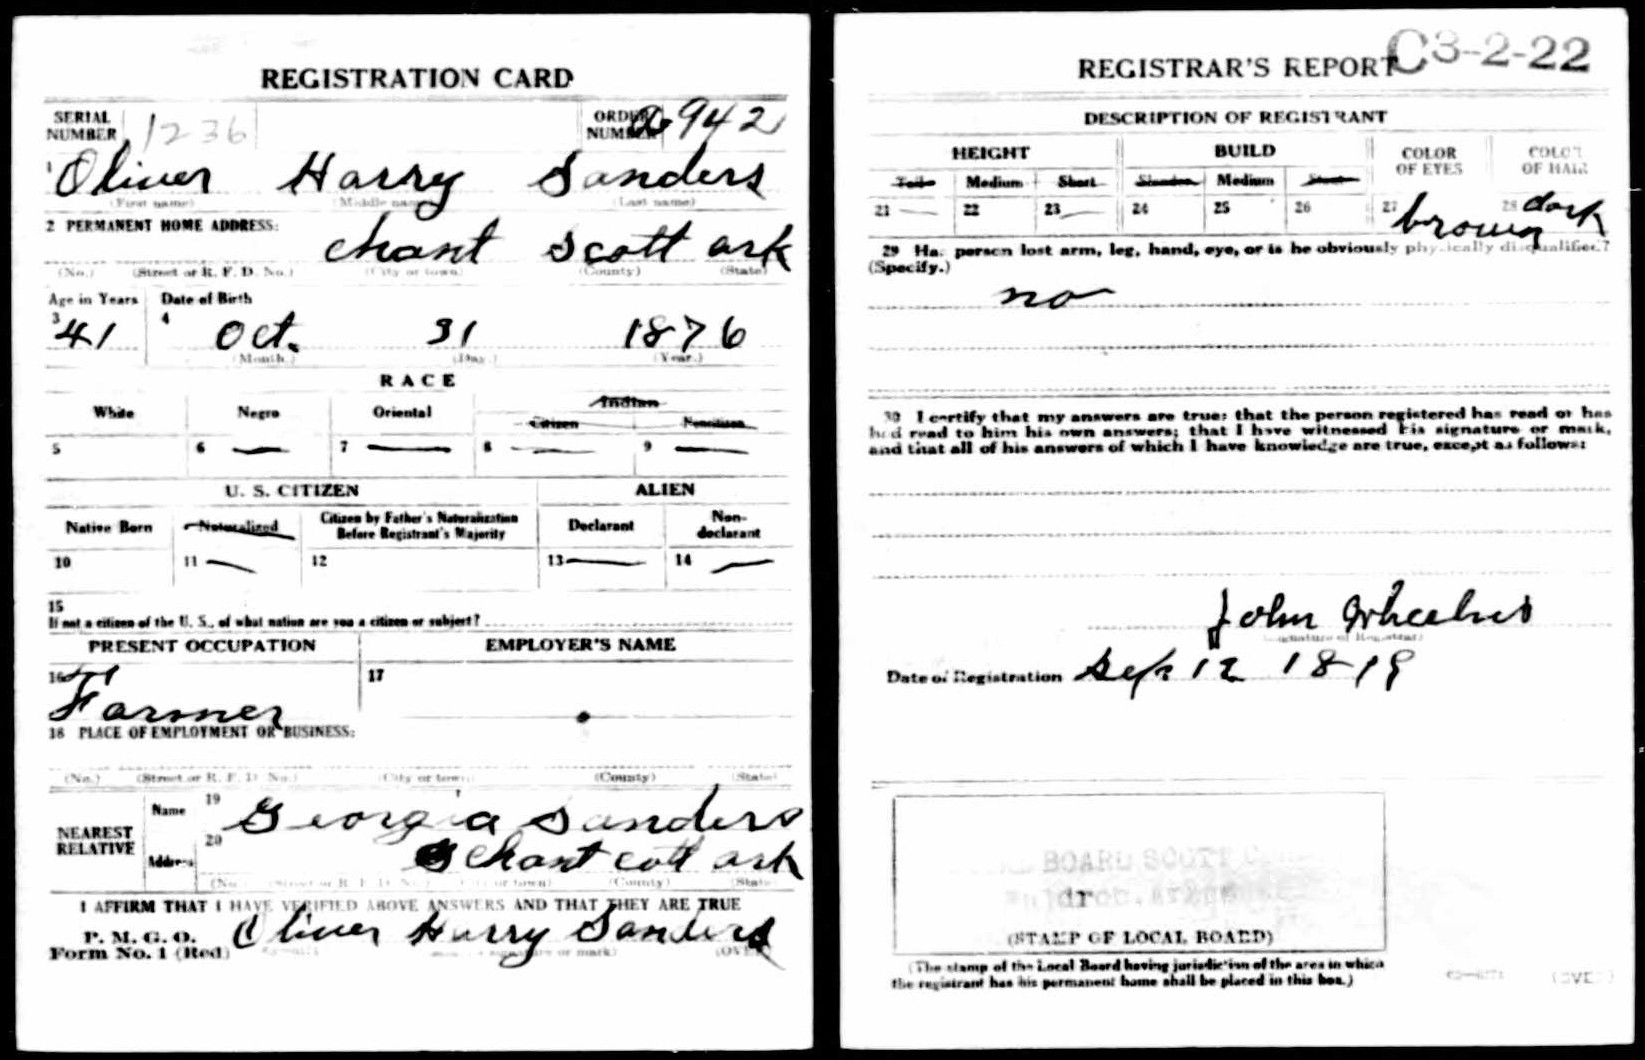 REGISTRATION CARD
SERIAL NUMBER 1236
ORDER NUMBER a 942
1 Oliver Harry Sanders
(First name) (Middle name) (Last name)
2 PERMANENT HOME ADDRESS:
chant Scott ark
(No.) (Street or R. F. D. No.) (City or town) (County) (State)
Age in Years Date of Birth
3 41 4 Oct. 31 1876
(Month.) (Day.) (Year.)
RACE
White Negro Oriental Indian
Citizen Noncitizen
5 6 7 8 9
U. S. CITIZEN ALIEN
Native Born Naturalized Citizen by Father's Naturalization Before Registrant's Majority Declarant Non-declarant
10 11 12 13 14
15
If not a citizen of the U. S., of what nation are you a citizen or subject?
PRESENT OCCUPATION EMPLOYER'S NAME
16 Farmer 17
18 PLACE OF EMPLOYMENT OR BUSINESS:
(No.) (Street or R. F. D. No.) (City or town) (County) (State)
NEAREST RELATIVE
Name 19 Georgia Sanders
Address 20 Chant cott ark
(No.) (Street or R. F. D. No.) (City or town) (County) (State)
I AFFIRM THAT I HAVE VERIFIED ABOVE ANSWERS AND THAT THEY ARE TRUE
P. M. G. O.
Form No. 1 (Red) Oliver Harry Sanders
signature or mark) (OVER)
C3-2-22
REGISTRAR'S REPORT
DESCRIPTION OF REGISTRANT
HEIGHT BUILD COLOR OF EYES COLOR OF HAIR
Tall Medium Short Slender Medium Stout
21 22 23 24 25 26 27 brown 28 dark
29 Has person lost arm, leg, hand, eye, or is he obviously physically disqualified?
(Specify.)
no
30 I certify that my answers are true; that the person registered has read or has
had read to him his own answers; that I have witnessed his signature or mark,
and that all of his answers of which I have knowledge are true, except as follows:
John
(Signature of Registrar)
Date of Registration Sep 12 1819
BOARD SCOTT
(STAMP OF LOCAL BOARD)
(The stamp of the Local Board having jurisdiction of the area in which
the registrant has his permanent home shall be placed in this box.)
(OVER)